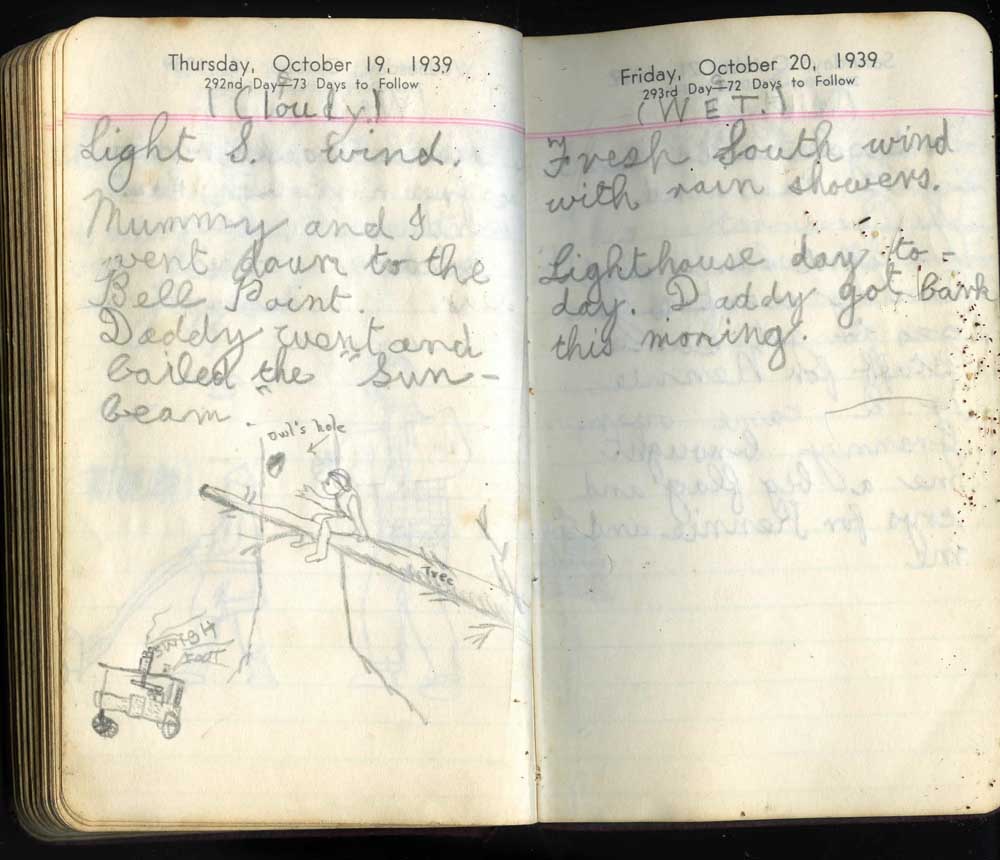 Thursday, October 19, 1939
292nd Day—73 Days to Follow
(Cloudy.)
Light S. wind.
Mummy and I
went down to the
Bell Point.
Daddy went and
bailed the "Sun-
beam.
owl's hole
Tree
SWISH
TOOT
Friday, October 20, 1939
293rd Day—72 Days to Follow
(WET.)
Fresh South wind
with rain showers.
Lighthouse day to-
day. Daddy got bark
this morning.